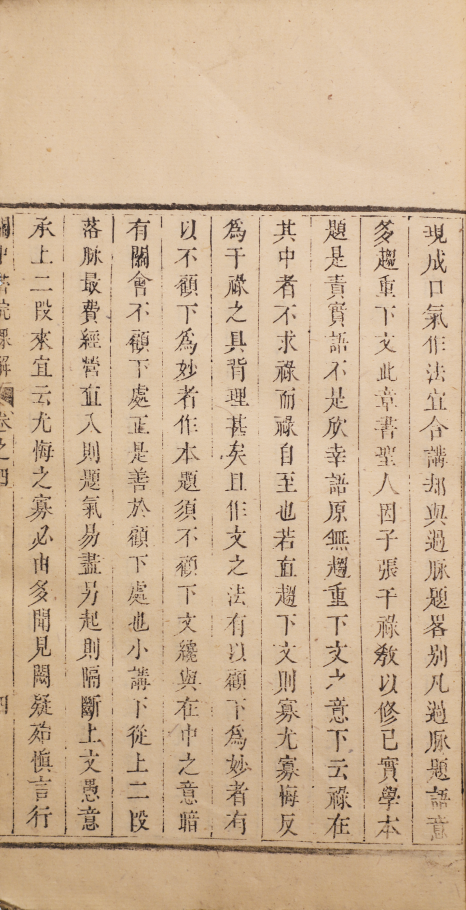 現成口氣作法宜合講却與過脉題畧别凡過脉題語意
多趨重下文此章書聖人因子張干祿敎以修己實學本
題是責實語不是欣幸語原無趨重下文之意下云祿在
其中者不求祿而祿自至也若直趨下文則寡尤寡悔反
爲干祿之具背理甚矣且作文之法有以顧下爲妙者有
以不顧下爲妙者作本題須不顧下文纔與在中之意暗
有關會不顧下處正是善於顧下處也小講下從上二段
落脉最費經營直入則題氣易盡另起則隔斷上文愚意
承上二段來宜云尤悔之寡必由多聞見闕疑殆愼言行
關中書院課解 卷之四 四